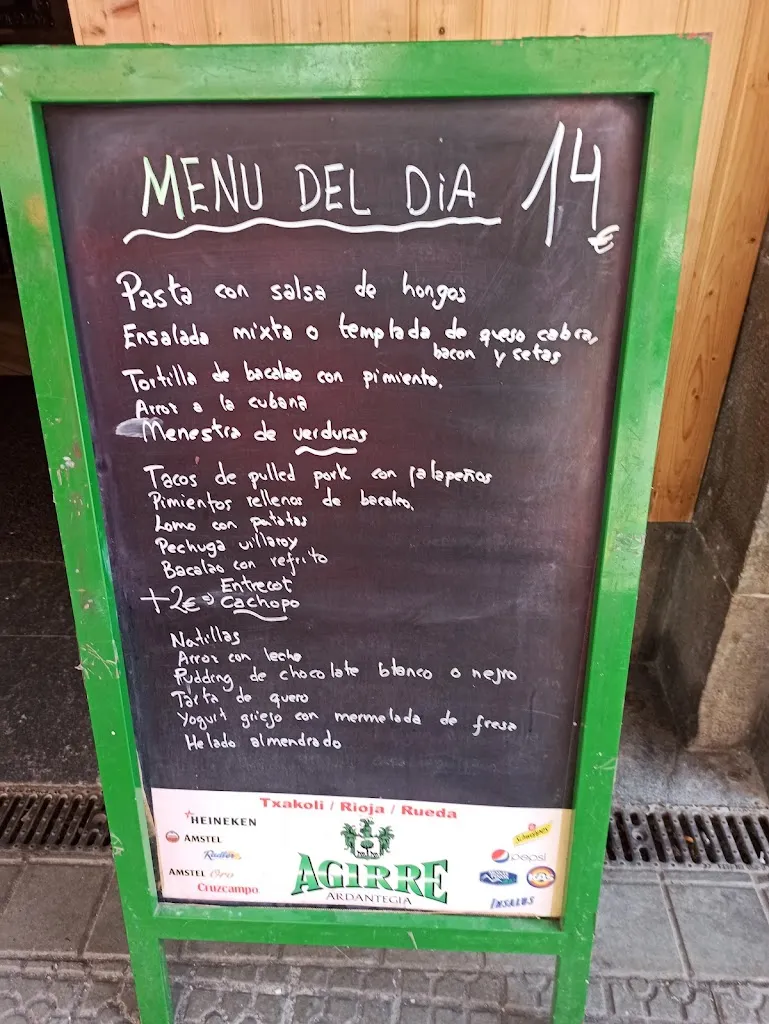 MENU DEL DiA 14 €
Pasta con salsa de hongos
Ensalada mixta o templada de queso cabra,
bacon y setas
Tortilla de bacalao con pimiento.
Arroz a la cubana
Menestra de verduras
Tacos de pulled pork con jalapeños
Pimientos rellenos de bacalao.
Lomo con patatas
Pechuga villaroy
Bacalao con refrito
Entrecot
+2€ => Cachopo
Natillas
Arroz con leche
Pudding de chocolate blanco o negro
Tarta de queso
Yogurt griego con mermelada de fresa
Helado almendrado
Txakoli / Rioja / Rueda
HEINEKEN
AMSTEL
Radler
AMSTEL Oro
Cruzcampo
AGIRRE
ARDANTEGIA
Schweppes
pepsi
KAS
INSALUS